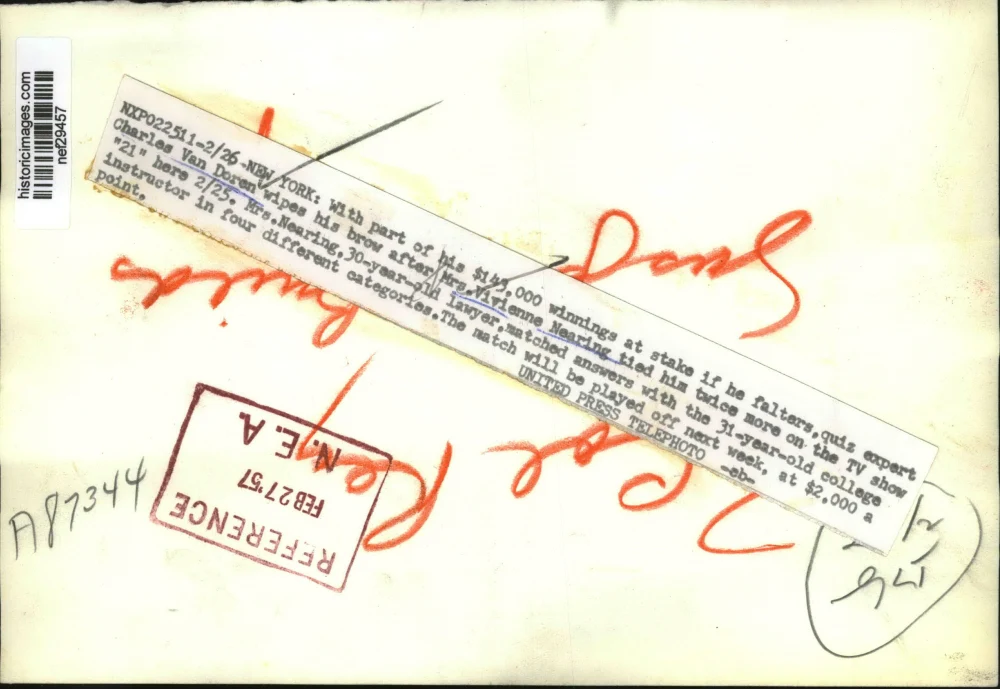 historicimages.com
nef29457
NXP022511-2/26-NEW YORK: With part of his $143,000 winnings at stake if he falters,quiz expert
Charles Van Doren wipes his brow after Mrs.Vivienne Nearing tied him twice more on the TV show
"21" here 2/25. Mrs.Nearing,30-year-old lawyer,matched answers with the 31-year-old college
instructor in four different categories.The match will be played off next week, at $2,000 a
point.
UNITED PRESS TELEPHOTO -eb-
A87344
REFERENCE
FEB 27 '57
N. E. A.